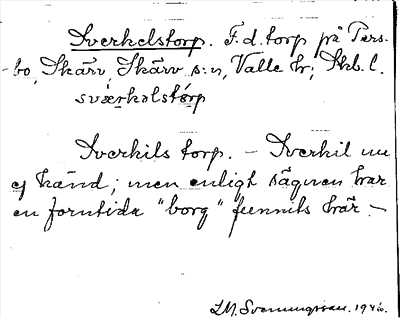 Sverkelstorp. F.d. torp på Pers-
bo, Skärv, Skärv s:n, Valle hr, Skb. l.
sværkəlstórp
Sverkils torp. – Sverkil nu
ej känd; men enligt sägnen har
en forntida "borg" funnits här –
Svenningsson. 1946.